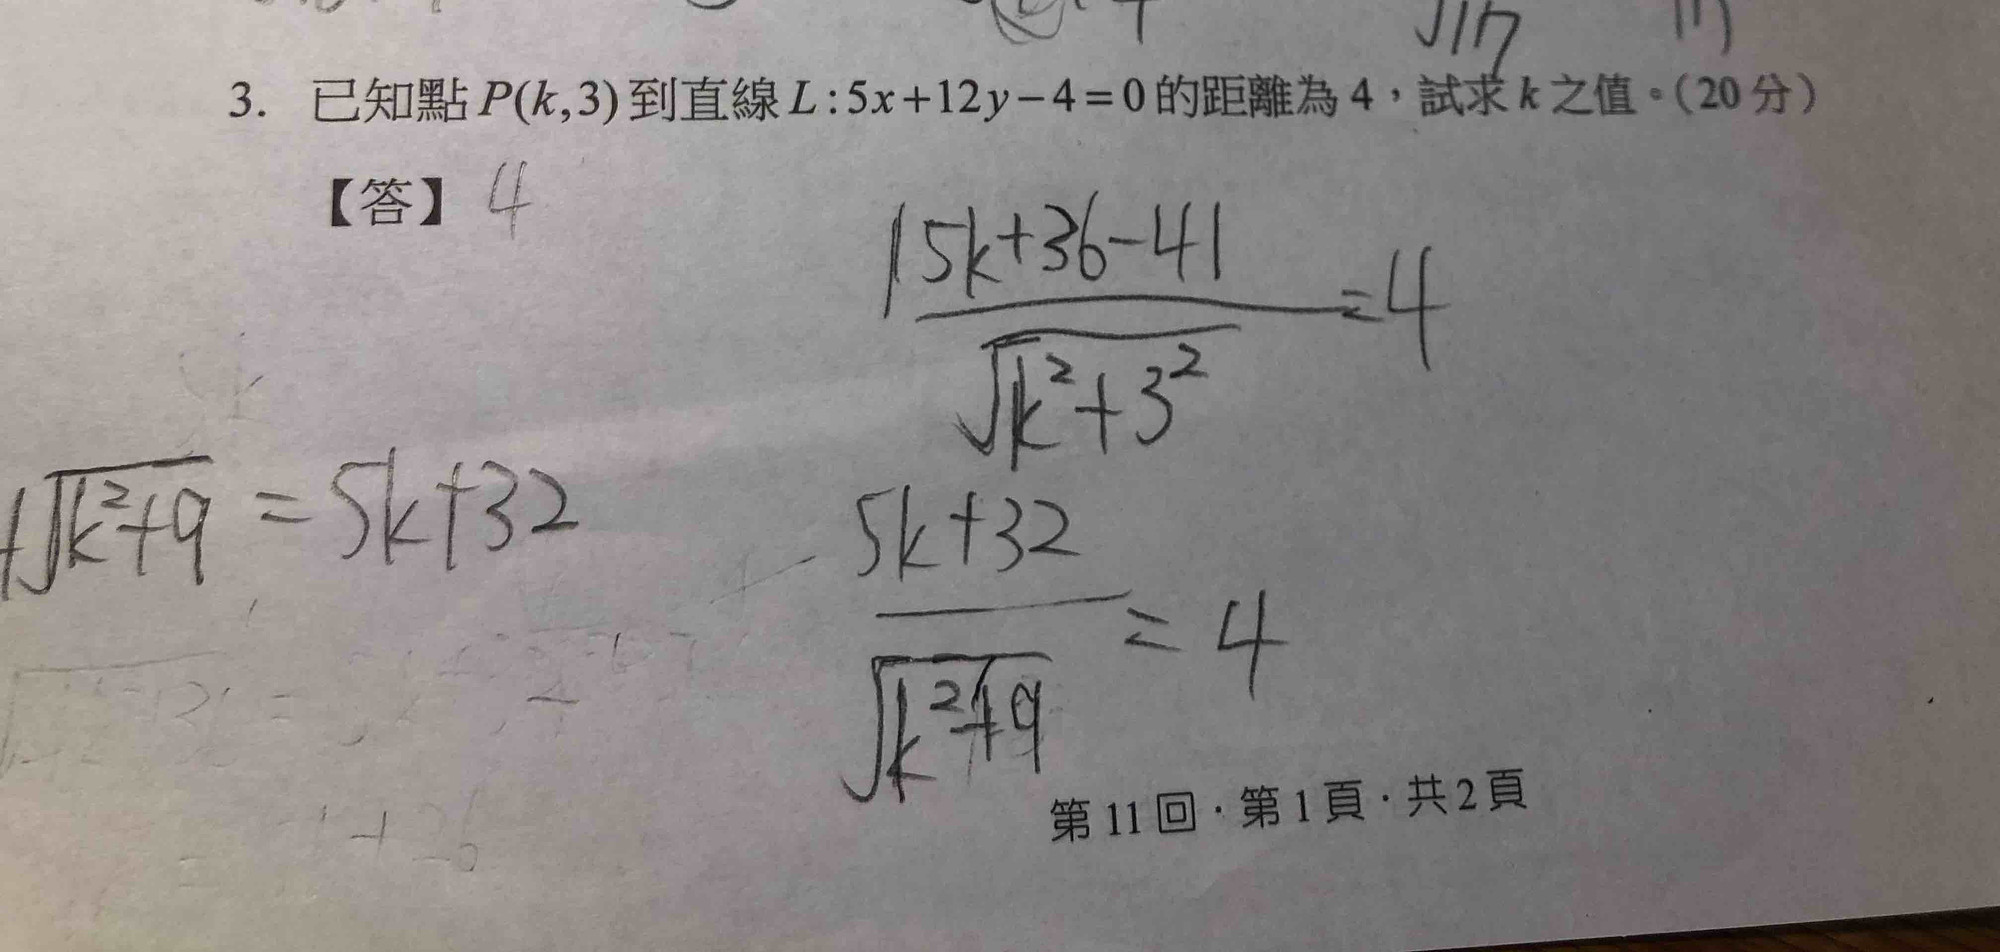 3. 已知點 P(k,3) 到直線 L:5x+12y−4=0 的距離為 4，試求 k 之值。(20分)
【答】 4
|5k+36-4|
=4
√k²+3²
4√k²+9 = 5k+32
5k+32
= 4
√k²+9
第 11 回．第 1 頁．共 2 頁